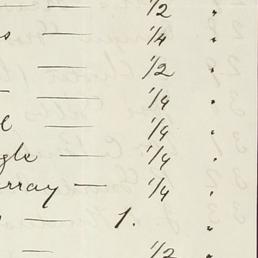 — 1/2 "
s — 1/4 "
— 1/2 "
— 1/4 "
l — 1/4 "
gle — 1/4 "
urray — 1/4 "
— 1. "
— 1/2 "